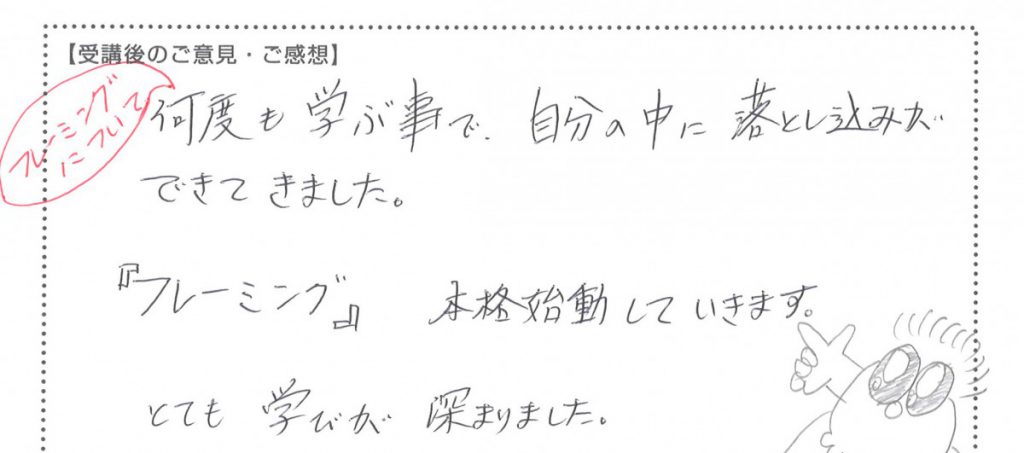 【受講後のご意見・ご感想】
フレーミング
について
何度も学ぶ事で、自分の中に落とし込みが
できてきました。
『フレーミング』 本格始動していきます。
とても学びが深まりました。